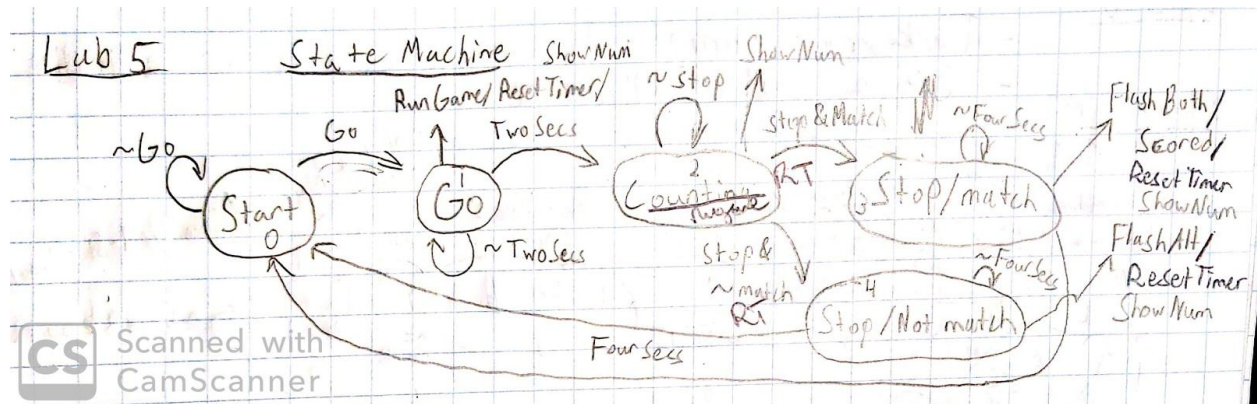 Lab 5
State Machine
ShowNum
RunGame/ResetTimer/
~Go
Go
TwoSecs
~Stop
ShowNum
Stop&Match
RT
~FourSecs
Flash Both/
Scored/
Reset Timer
ShowNum
Start
0
1
Go
~TwoSecs
2
Counting
3 Stop/match
Stop&
~match
RT
~FourSecs
FlashAlt/
ResetTimer
ShowNum
4
Stop/Not match
FourSecs
CS
Scanned with
CamScanner